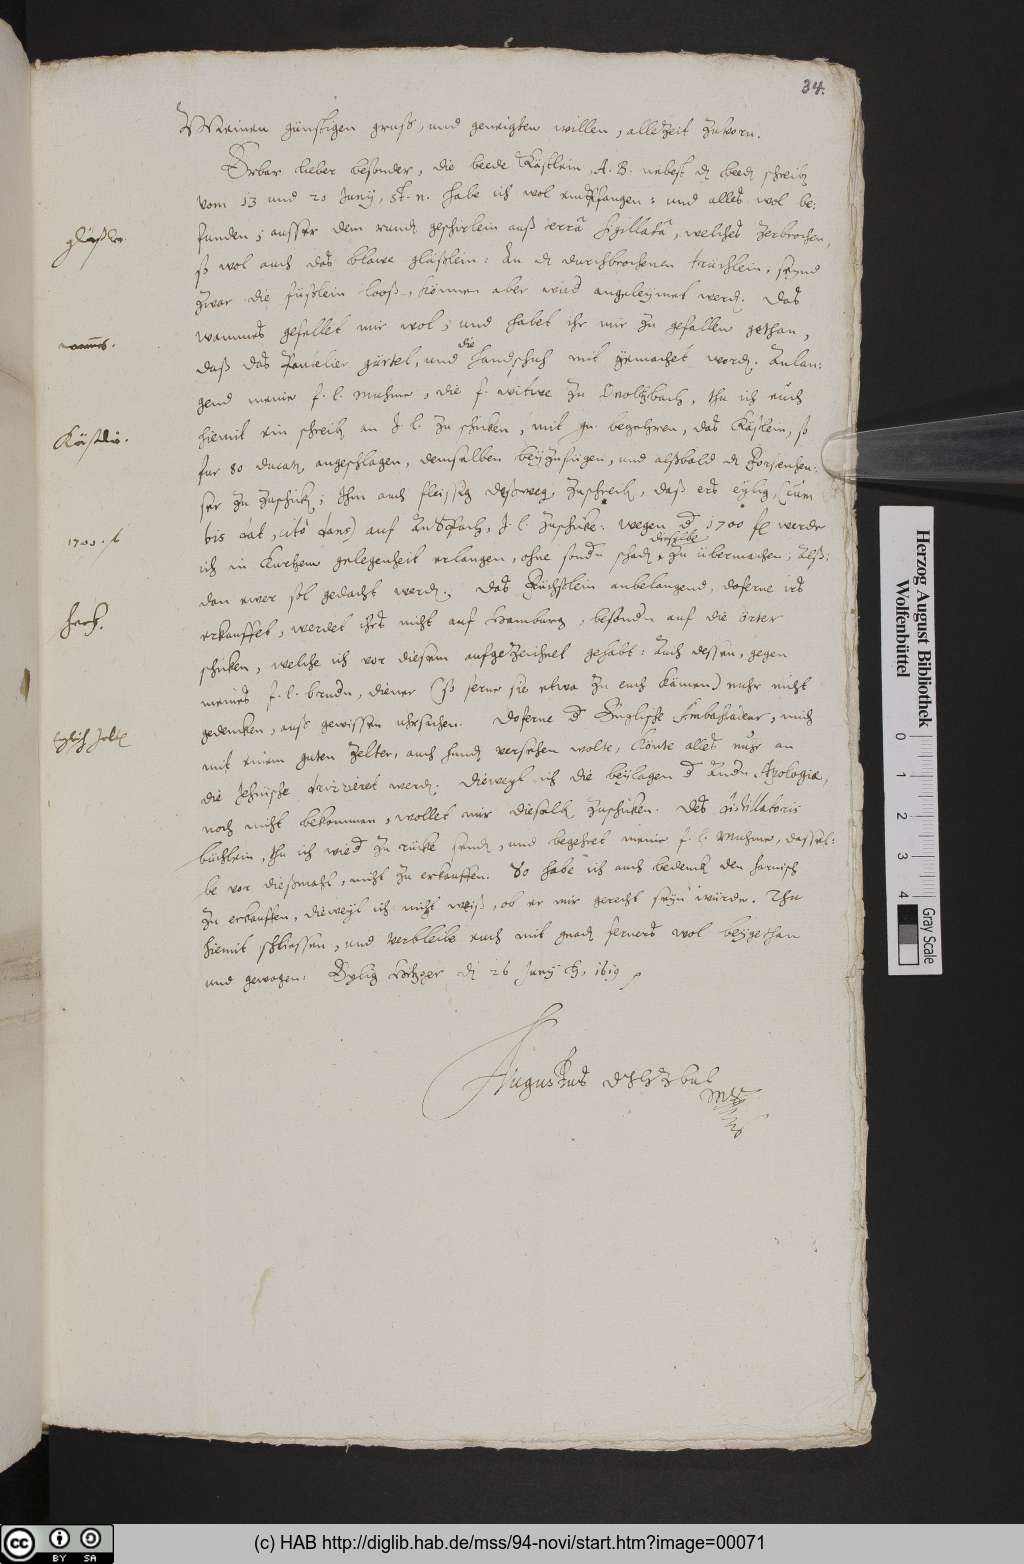 34.
Meinen günstigen gruss, und geneigten willen, alle Zeit zuvorn.
Erbar lieber besonder, die beede Kästlein, A. B. nebest dẽ beedẽ schreibẽ
vom 13 und 20 Junij, st. n. habe ich wol entpfangen: und alles wol be:
funden; ausser dem rundẽ geschirlein auß terrâ sigillatâ, welches zerbrochen,
gläßlin.
so wol auch das blawe gläßlein: An dẽ durchbrochenen trüchlein, seynd
zwar die füßlein looß, können aber wied angeleymet werdẽ. Das
wammes gefellet mir wol; und habet ihr mir zu gefallen gethan,
wammes.
die
daß das gürtel, und handschuh mit gemachet wordẽ. Anlan:
gend meine f. l. Muhme, die f. witwe zu Onoltzbach, thu ich euch
Kästlin.
hiemit ein schreibẽ an J. l. zu schicken, mit gn. begehren, das Kästlein, so
für 80 ducatẽ angeschlagen, demselben beyzufügen, und alßbald dẽ
zu zuschickẽ; ihm auch fleissig zuschreibẽ, daß ers eylig, (cum
bis dat, citò dans) auf Anspach, J. l. zuschicke: wegen d 1700 fl werde
1700. fl
dieselbe
ich in kurtzem gelegenheit erlangen, ohne sondn schadẽ, zu übermachen; Alß:
dan ewer sol gedacht werdẽ. Das Büchßlein anbelangend, doferne irs
erkauffet, werdet ihrs nicht auf Hamburg, besondn auf die örter
schicken, welche ich vor diesem aufgezeichnet gehabt: Auch dessen, gegen
meines f. l. brudn, diener (so ferne sie etwa zu euch kämen) nuhr nicht
gedencken, auß gewissen uhrsachen. Doferne d Englische Embassadeur, mich
Englisch Zelter
mit einem guten Zelter, auch hundẽ versehen wolte, könte alles nuhr an
die werdẽ. Dieweyl ich die beylagen d Andn Apologia,
noch nicht bekommen, wollet mir dieselbẽ zuschicken. Des distillatoris
büchlein, thu ich wied zu rücke sendẽ, und begehret meine f. l. Muhme, dassel:
be vor dießmahl, nicht zu erkauffen. So habe ich auch bedenckẽ den harnisch
zu erkauffen, dieweyl ich nicht weiß, ob er mir gerecht seyn würde. Thu
hiemit schliessen, und verbleibe euch mit gnadẽ ferners wol beygethan
und gewogen: Eylig Hitzger dẽ 26 Junij A. 1619
Augustus d J H Z B u L
mpp
Herzog August Bibliothek
Wolfenbüttel
0 1 2 3 4
Gray Scale
cc BY SA
(c) HAB http://diglib.hab.de/mss/94-novi/start.htm?image=00071